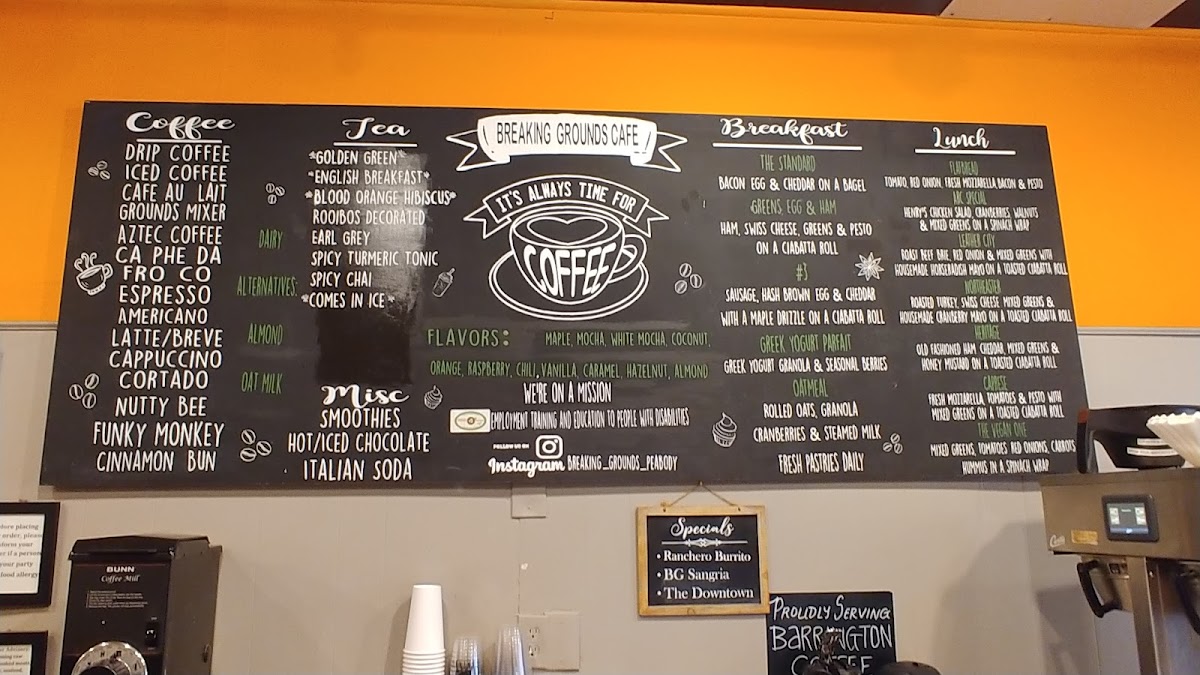 Coffee
DRIP COFFEE
ICED COFFEE
CAFE AU LAIT
GROUNDS MIXER
AZTEC COFFEE
CA PHE DA
FRO CO
ESPRESSO
AMERICANO
LATTE/BREVE
CAPPUCCINO
CORTADO
NUTTY BEE
FUNKY MONKEY
CINNAMON BUN
DAIRY
ALTERNATIVES:
ALMOND
OAT MILK
Tea
*GOLDEN GREEN*
*ENGLISH BREAKFAST*
*BLOOD ORANGE HIBISCUS*
ROOIBOS DECORATED
EARL GREY
SPICY TURMERIC TONIC
SPICY CHAI
*COMES IN ICE*
Misc
SMOOTHIES
HOT/ICED CHOCOLATE
ITALIAN SODA
BREAKING GROUNDS CAFE
IT'S ALWAYS TIME FOR
COFFEE
FLAVORS: MAPLE, MOCHA, WHITE MOCHA, COCONUT,
ORANGE, RASPBERRY, CHILI, VANILLA, CARAMEL, HAZELNUT, ALMOND
WE'RE ON A MISSION
EMPLOYMENT TRAINING AND EDUCATION TO PEOPLE WITH DISABILITIES
FOLLOW US ON
Instagram BREAKING_GROUNDS_PEABODY
Breakfast
THE STANDARD
BACON EGG & CHEDDAR ON A BAGEL
GREENS EGG & HAM
HAM, SWISS CHEESE, GREENS & PESTO
ON A CIABATTA ROLL
#3
SAUSAGE, HASH BROWN EGG & CHEDDAR
WITH A MAPLE DRIZZLE ON A CIABATTA ROLL
GREEK YOGURT PARFAIT
GREEK YOGURT GRANOLA & SEASONAL BERRIES
OATMEAL
ROLLED OATS, GRANOLA
CRANBERRIES & STEAMED MILK
FRESH PASTRIES DAILY
Lunch
FLATBREAD
TOMATO, RED ONION, FRESH MOZZARELLA BACON & PESTO
SPECIAL
HENRY'S CHICKEN SALAD, CRANBERRIES, WALNUTS
& MIXED GREENS ON A SPINACH WRAP
LEATHER CITY
ROAST BEEF BRIE, RED ONION & MIXED GREENS WITH
HOUSEMADE HORSERADISH MAYO ON A TOASTED CIABATTA ROLL
NORTHEASTER
ROASTED TURKEY, SWISS CHEESE MIXED GREENS &
HOUSEMADE CRANBERRY MAYO ON A TOASTED CIABATTA ROLL
HERITAGE
OLD FASHIONED HAM CHEDDAR, MIXED GREENS &
HONEY MUSTARD ON A TOASTED CIABATTA ROLL
CAPRESE
FRESH MOZZARELLA TOMATOES & PESTO WITH
MIXED GREENS ON A TOASTED CIABATTA ROLL
THE VEGAN ONE
MIXED GREENS, TOMATOES RED ONIONS, CARROTS
HUMMUS IN A SPINACH WRAP
Specials
• Ranchero Burrito
• BG Sangria
• The Downtown
PROUDLY SERVING
BARRINGTON
COFFEE
BUNN
Coffee Mill
before placing
order, please
inform your
if a person
your party
food allergy